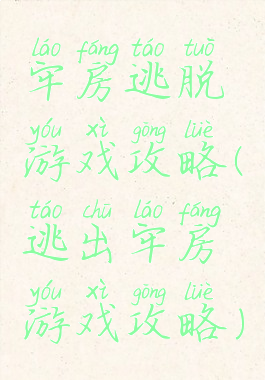 láo fáng táo tuō
牢房逃脱
yóu xì gōng lüè
游戏攻略(
táo chū láo fáng
逃出牢房
yóu xì gōng lüè
游戏攻略)